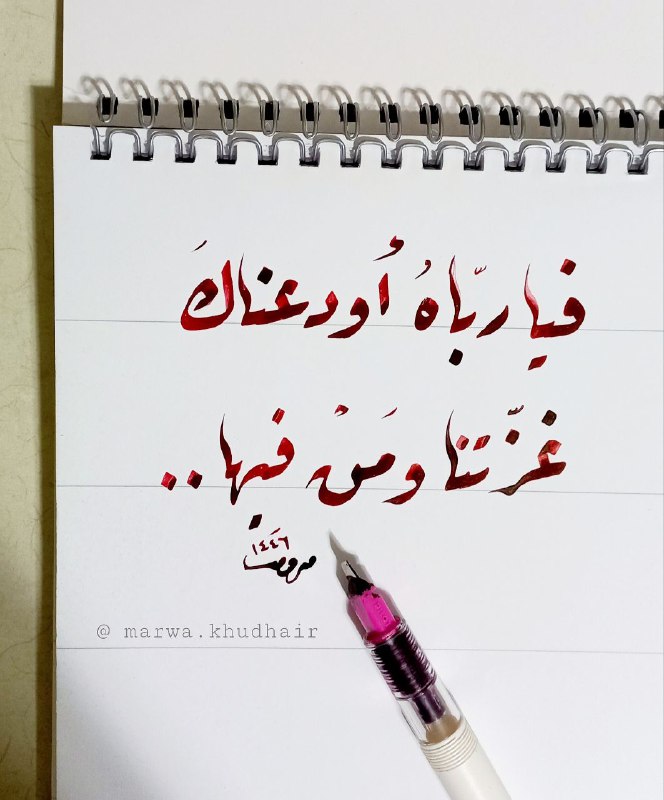 فيا ربّاهُ أُودعناكَ
غزّتنا ومَنْ فيها..
١٤٤٦
مروة
@ marwa.khudhair